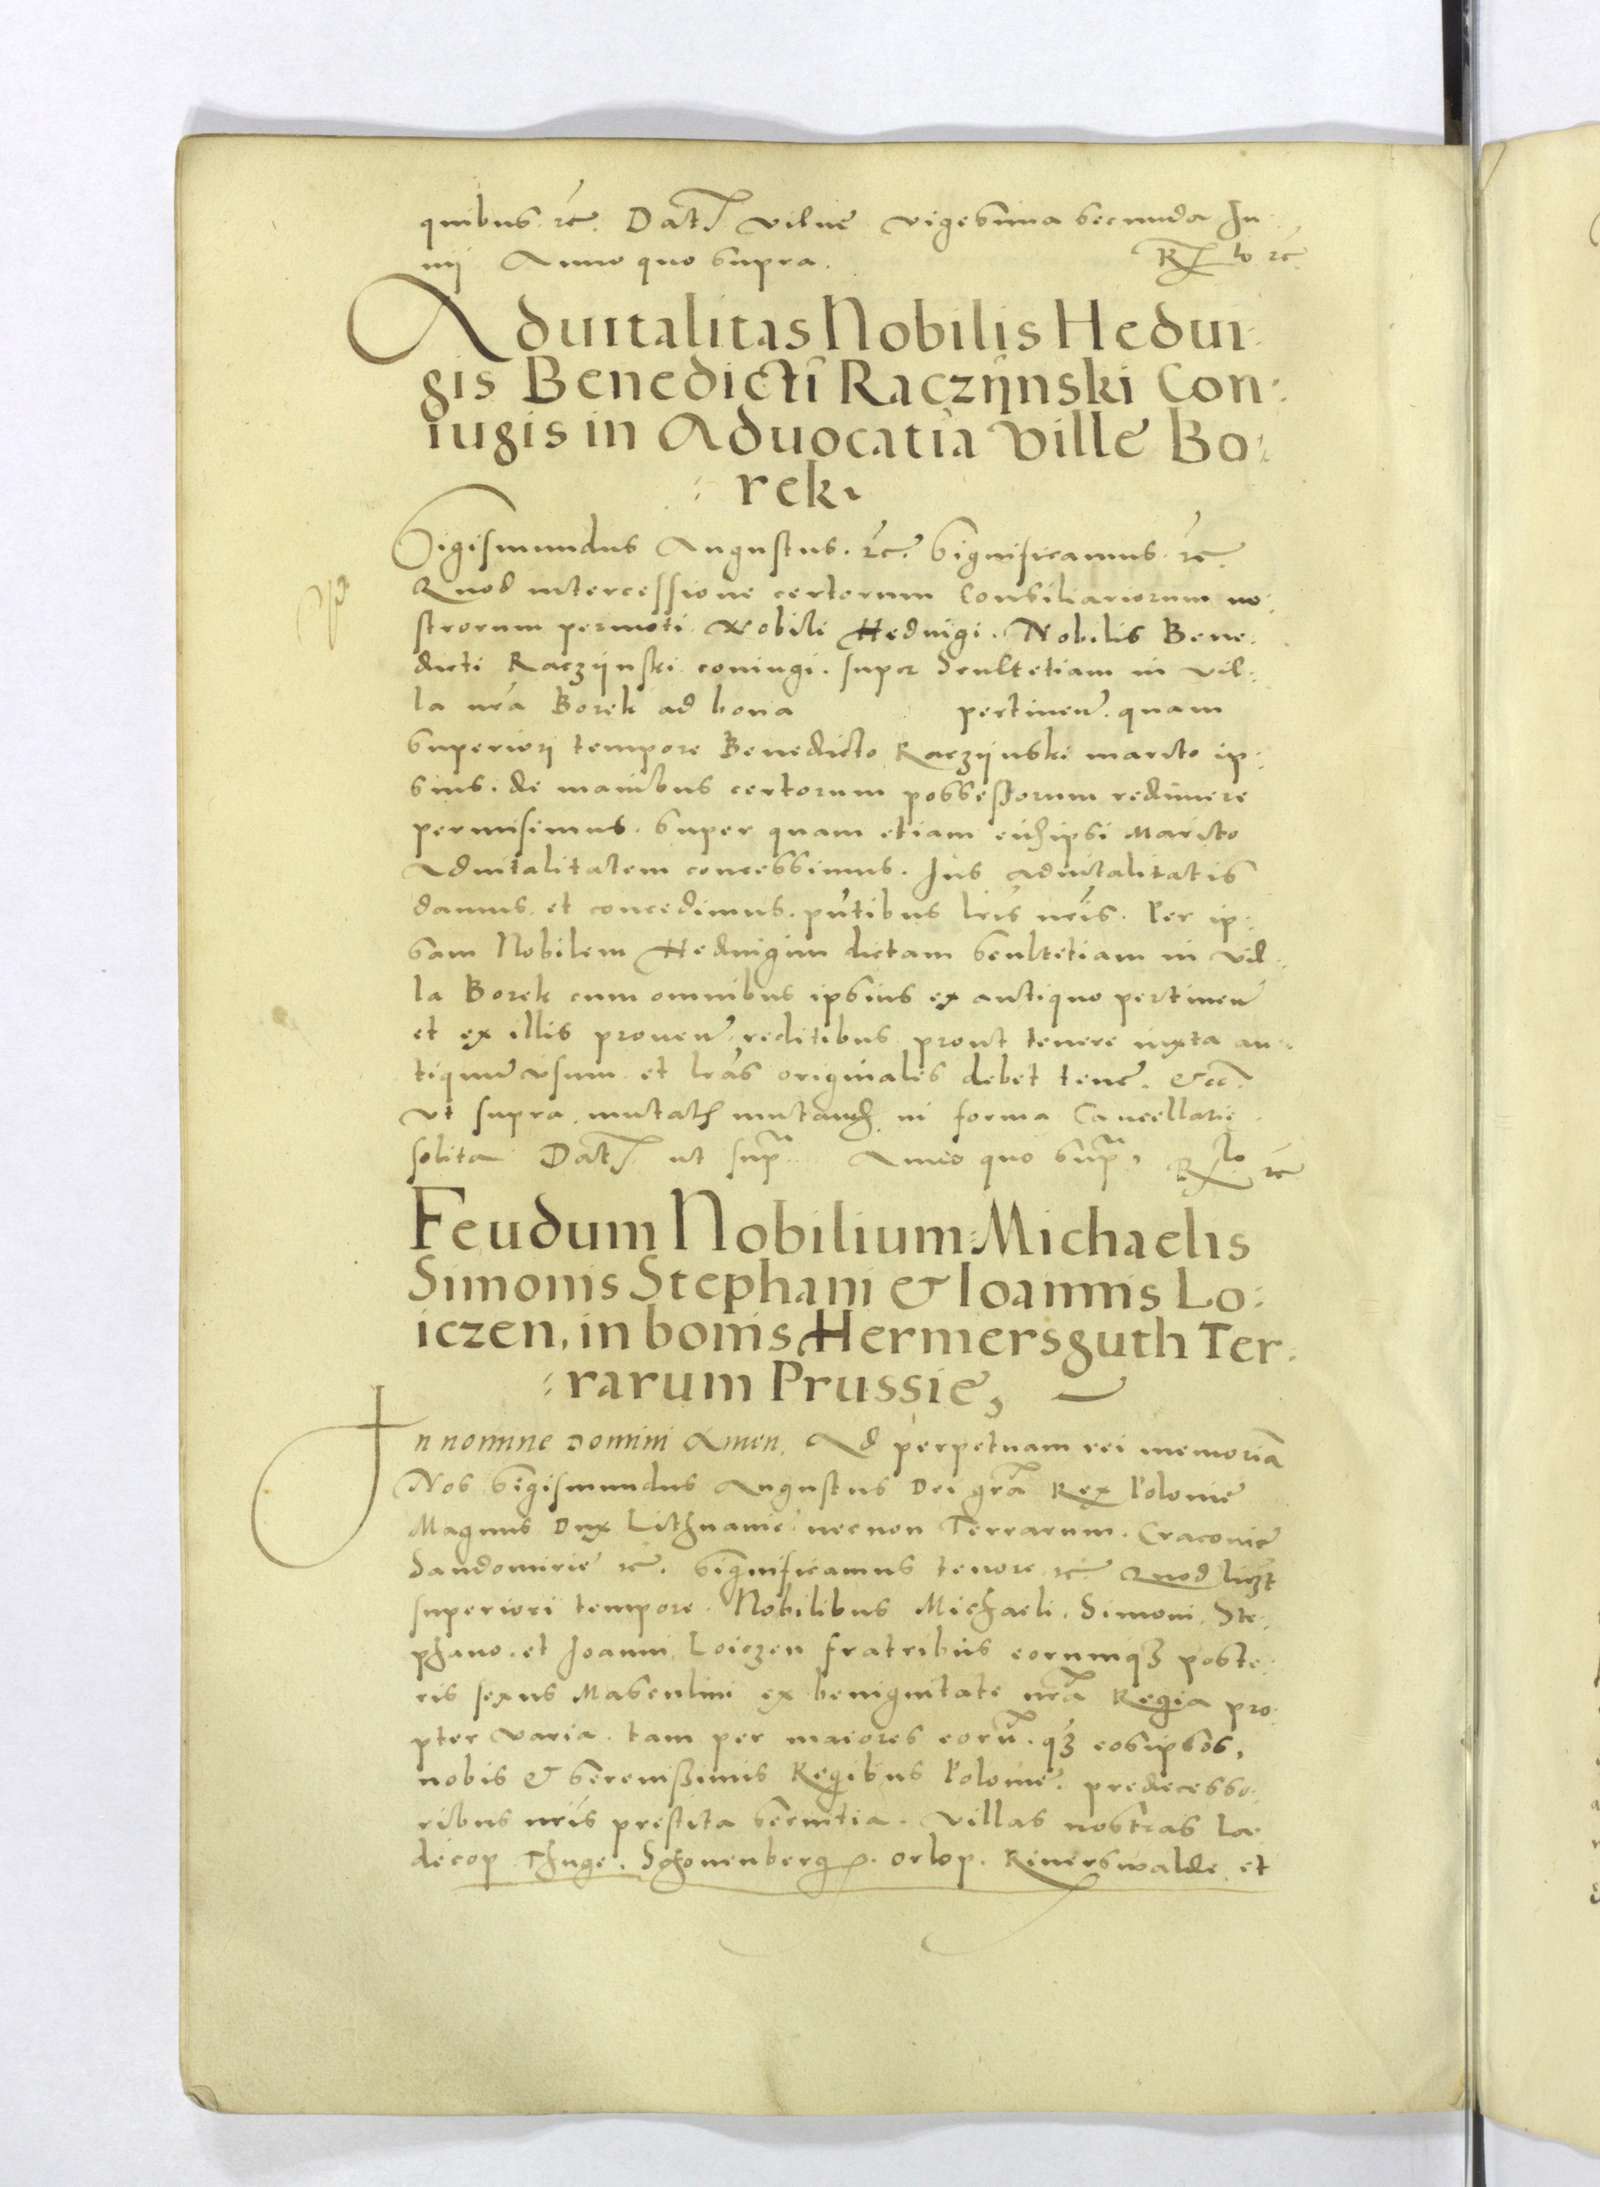 quibus. etc̃. Dat. Vilnę vigesima secunda Iu-
nij Anno quo supra. Rx lo etc̃
Aduitalitas Nobilis Hedui-
gis Benedicti Raczÿnski Con-
iugis in Aduocatia Villę Bo-
rek.
Sigismundus Augustus. etc̃. Significamus. etc̃.
Quod intercessione certorum Consiliariorum no-
strorum permoti. Nobili Heduigi. Nobilis Bene-
dicti Raczÿnski coniugi. super Scultetiam in vil-
la nr̃a Borek ad bona pertineñ. quam
superiori tempore Benedicto Raczÿnski marito ip-
sius. de manibus certorum possessorum redimere
permisimus. super quam etiam ipsi Marito
Aduitalitatem concessimus. Ius aduitalitatis
damus. et concedimus. pñtibus lr̃is nr̃is. Per ip-
sam Nobilem Heduigim dictam scultetiam in vil-
la Borek cum omnibus ipsius ex antiquo pertineñ
et ex illis proueñ. reditibus prout tenere iuxta an-
tiquũ vsum et lr̃as originales debet teneñ. etc̃.
vt supra mutatis mutand. in forma Cancellarię
solita Dat. ut sup̃. Anno quo sup̃, Rx lo etc̃
Feudum Nobilium Michaelis
Simonis Stephani & Ioannis Lo-
iczen, in bonis Hermersguth Ter-
rarum Prussię,
In nomine Domini Amen. Ad perpetuam rei memoriã
Nos Sigismundus Augustus Dei gr̃a Rex Polonię
Magnus Dux Lithuanię necnon Terrarum. Cracouię
Sandomirię etc̃. Significamus tenore etc̃ Quod licet
superiori tempore. Nobilibus Michaeli. Simoni. Ste-
phano. et Ioanni Loiczen fratribus eorumq3 poste-
ris sexus Masculini ex benignitate nr̃a Regia pro-
pter varia. tam per maiores eorũ. q3 eosipsos,
nobis & serenissimis Regibus Polonię. predecesso-
ribus nr̃is prestita seruitia. Villas nostras La-
decop Thuge. Schonenberg. Orlop. Reinerswalde et